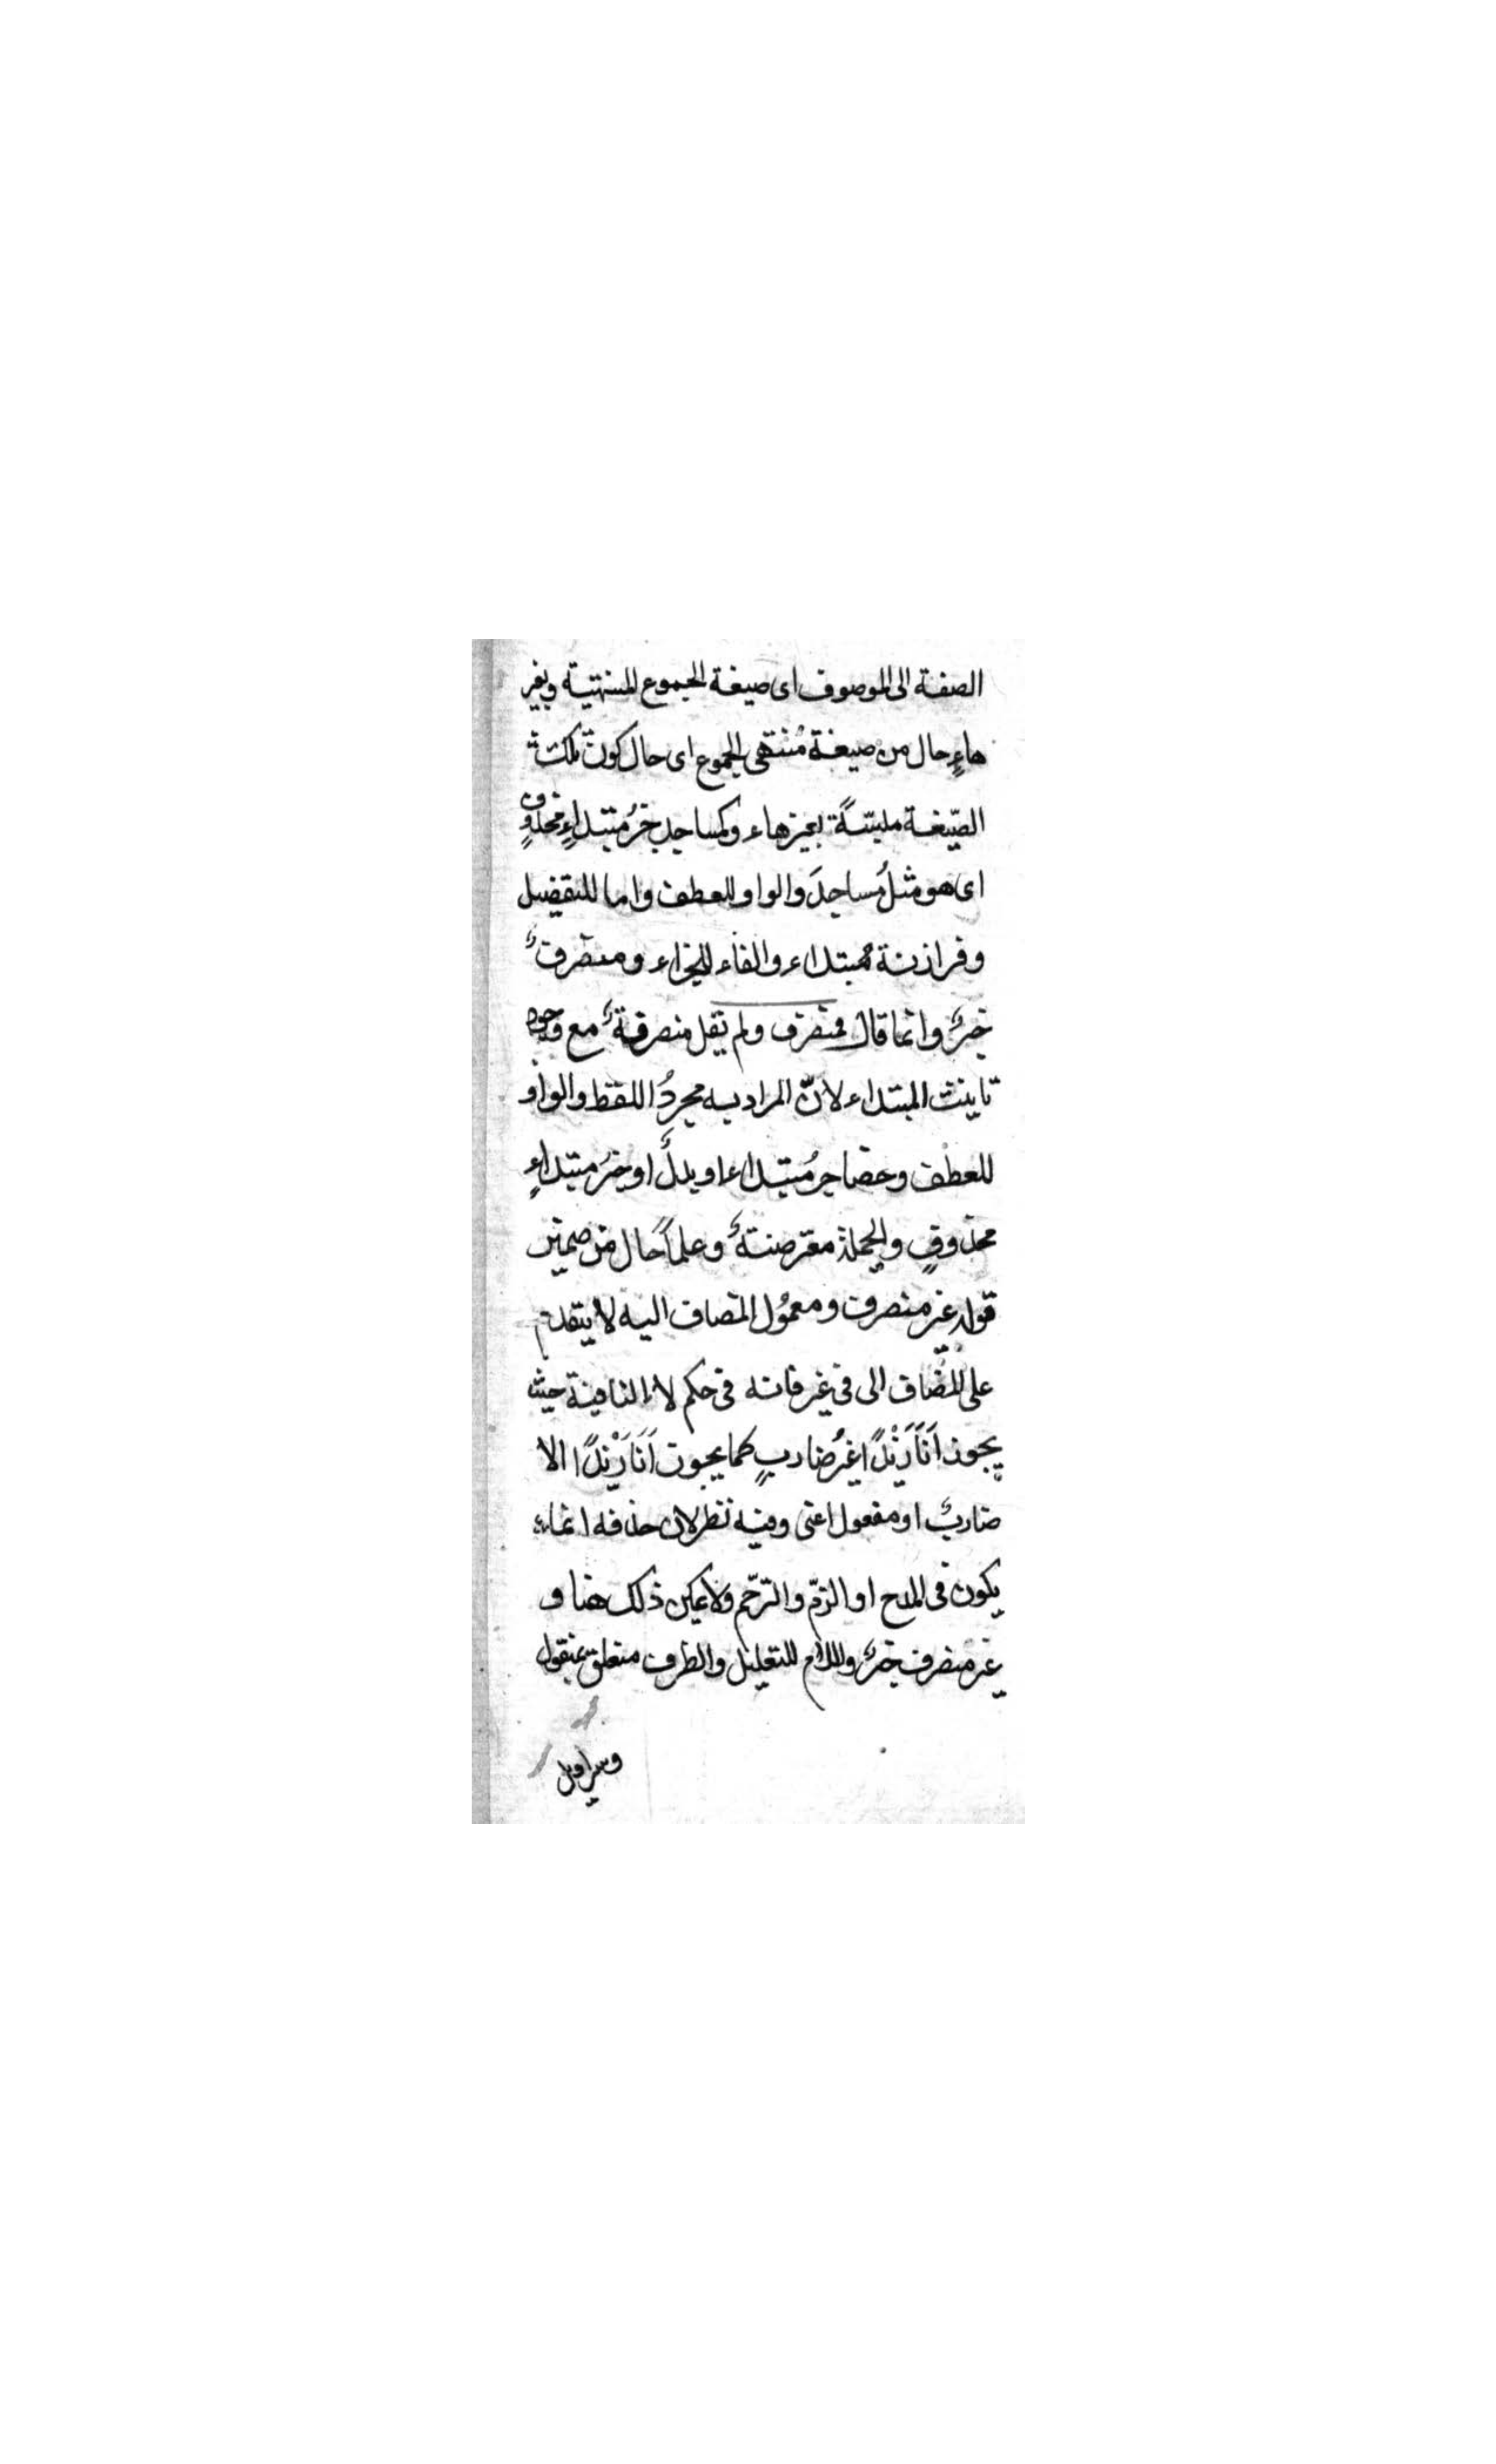 الصفة الى الموصوف اى صيغة الجموع المنتهية وبغير
هاءٍ حال من صيغة مُنتهى الجموع اى حال كون تلك
الصّيغة ملبّسةً بغيرهاء وكمساجد خبرُ مبتداءٍ محذوفٍ
اى هو مثلُ مساجدَ والواو للعطف واما للتفضيل
وفرازنة مبتداء والفاء للجزاء ومنصرفٌ
خبرٌ وانما قال فمنصرف ولم يقل منصرفةٌ مع وجود
تاينث المبتداء لانّ المراد به مجردُ اللفظ والواو
للعطف وحضاجرُ مبتداء او بدلٌ او خبرُ مبتداءٍ
محذوفٍ والجملة معترضنةٌ وعلماً حال من ضمير
قوله غير منصرف ومعمُول المضاف اليه لا يتقدم
على المضاف الى فى غير فانه فى حكم لاء النافية حيث
يجوز اَنَا زَيْدًا غيرُ ضاربٍ كما يجوز اَنَا زَيْدًا الا
ضاربٌ او مفعول اعنى وفيه نظر لان حذفه انما
يكون فى المدح او الذمّ والتّرحّم ولا يمكن ذلك هنا و
غير منصرف خبرٌ واللام للتعليل والظرف متعلق بمنقول
وسراويل